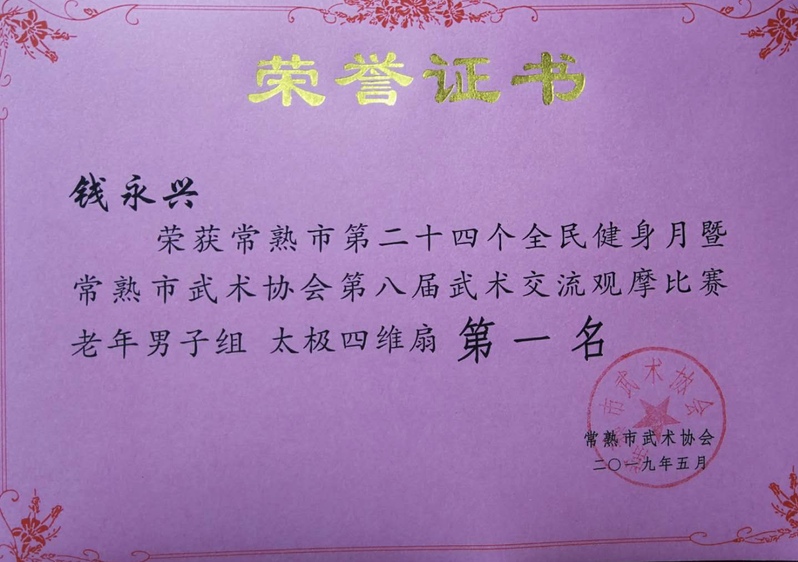 荣誉证书
钱永兴
荣获常熟市第二十四个全民健身月暨
常熟市武术协会第八届武术交流观摩比赛
老年男子组 太极四维扇 第一名
常熟市武术协会
常熟市武术协会
二〇一九年五月